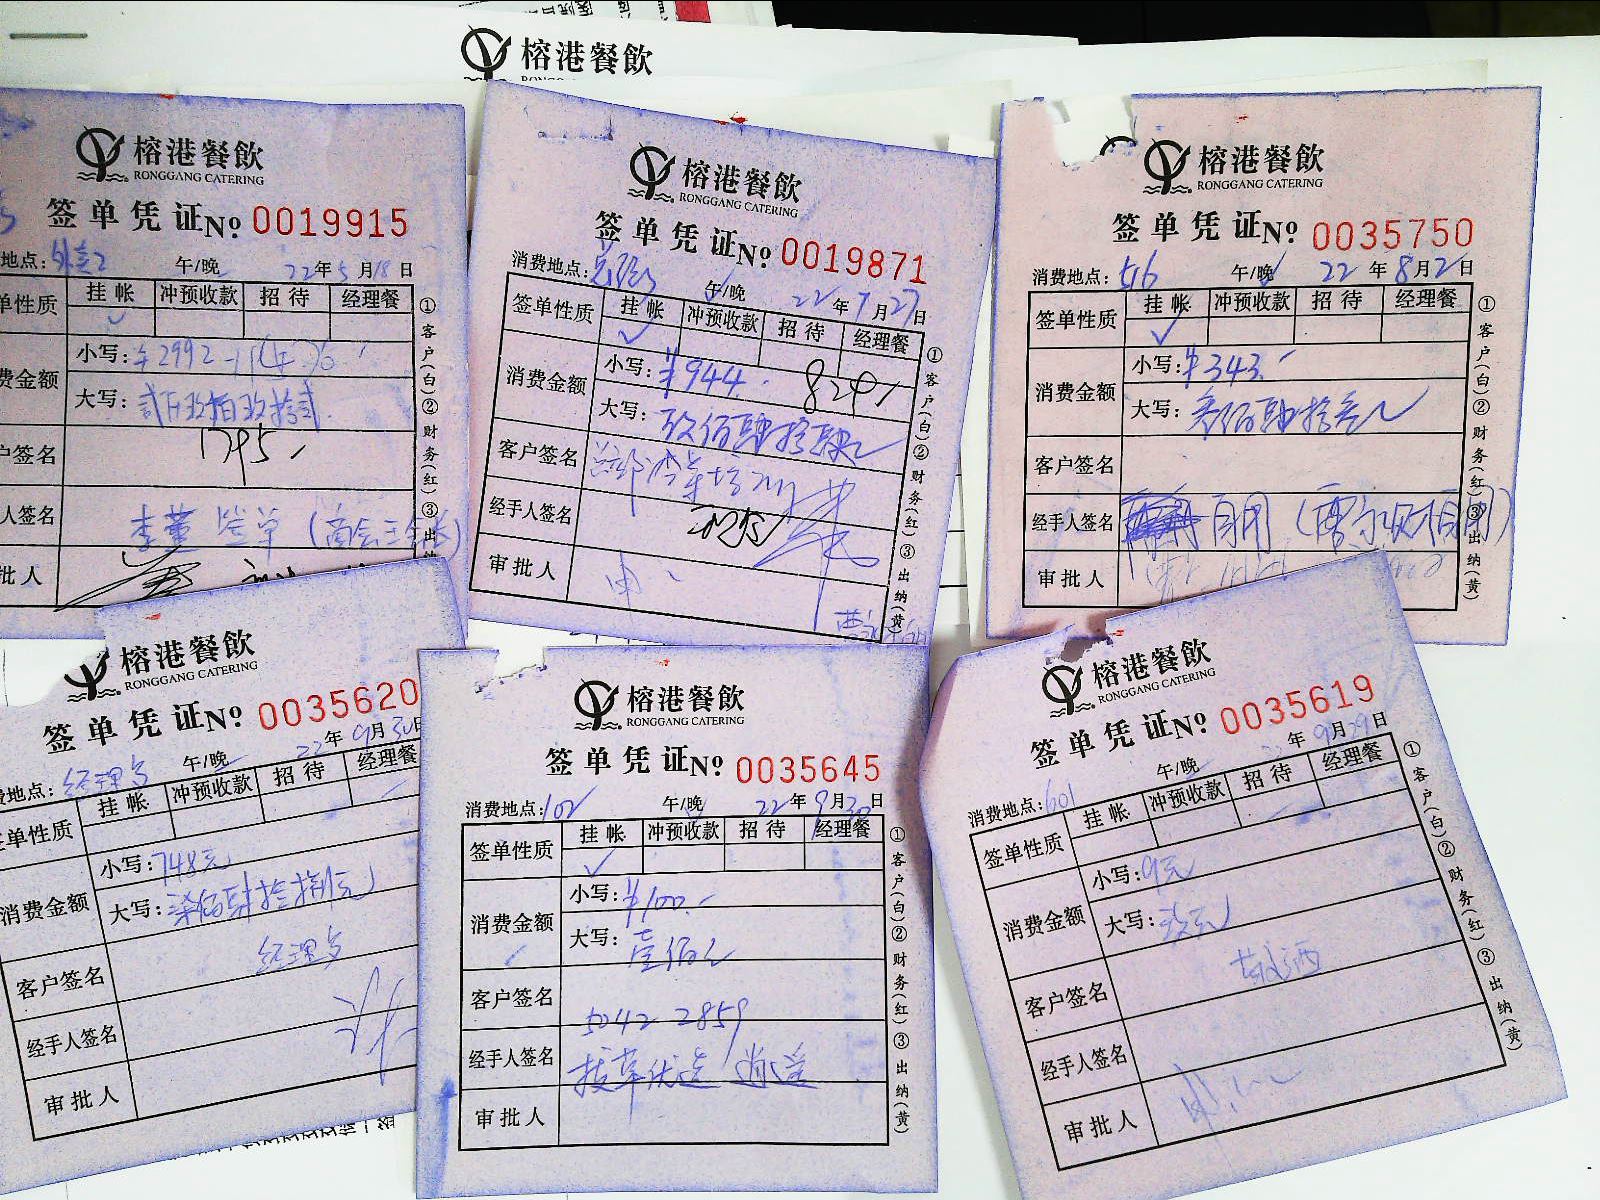 榕港餐飲
榕港餐飲
RONGGANG CATERING
签单凭证№ 0019915
地点: 午/晚 22年5月18日
单性质 挂帐 冲预收款 招待 经理餐
费金额 小写:¥2992
大写:贰仟玖佰玖拾贰
1795
户签名
人签名 李董签单
批人
①客户(白)②财务(红)③出纳
榕港餐飲
RONGGANG CATERING
签单凭证№ 0019871
消费地点: 午/晚 22年7月27日
签单性质 挂帐 冲预收款 招待 经理餐
消费金额 小写:¥944. 824
大写:玖佰肆拾肆元
客户签名
经手人签名
审批人
①客户(白)②财务(红)③出纳(黄)
榕港餐飲
RONGGANG CATERING
签单凭证№ 0035750
消费地点:516 午/晚 22年8月2日
签单性质 挂帐 冲预收款 招待 经理餐
消费金额 小写:¥343.
大写:叁佰肆拾叁元
客户签名
经手人签名
审批人
①客户(白)②财务(红)③出纳(黄)
榕港餐飲
RONGGANG CATERING
签单凭证№ 0035620
费地点:经理餐 午/晚 22年9月30日
签单性质 挂帐 冲预收款 招待 经理餐
消费金额 小写:748元
大写:柒佰肆拾捌元
客户签名 经理餐
经手人签名
审批人
榕港餐飲
RONGGANG CATERING
签单凭证№ 0035645
消费地点:102 午/晚 22年9月30日
签单性质 挂帐 冲预收款 招待 经理餐
消费金额 小写:¥100.
大写:壹佰元
客户签名 5042 2859
经手人签名 拔草优选 逍遥
审批人
①客户(白)②财务(红)③出纳(黄)
榕港餐飲
RONGGANG CATERING
签单凭证№ 0035619
消费地点:601 午/晚 22年9月29日
签单性质 挂帐 冲预收款 招待 经理餐
消费金额 小写:9元
大写:玖元
客户签名
经手人签名
审批人
①客户(白)②财务(红)③出纳(黄)